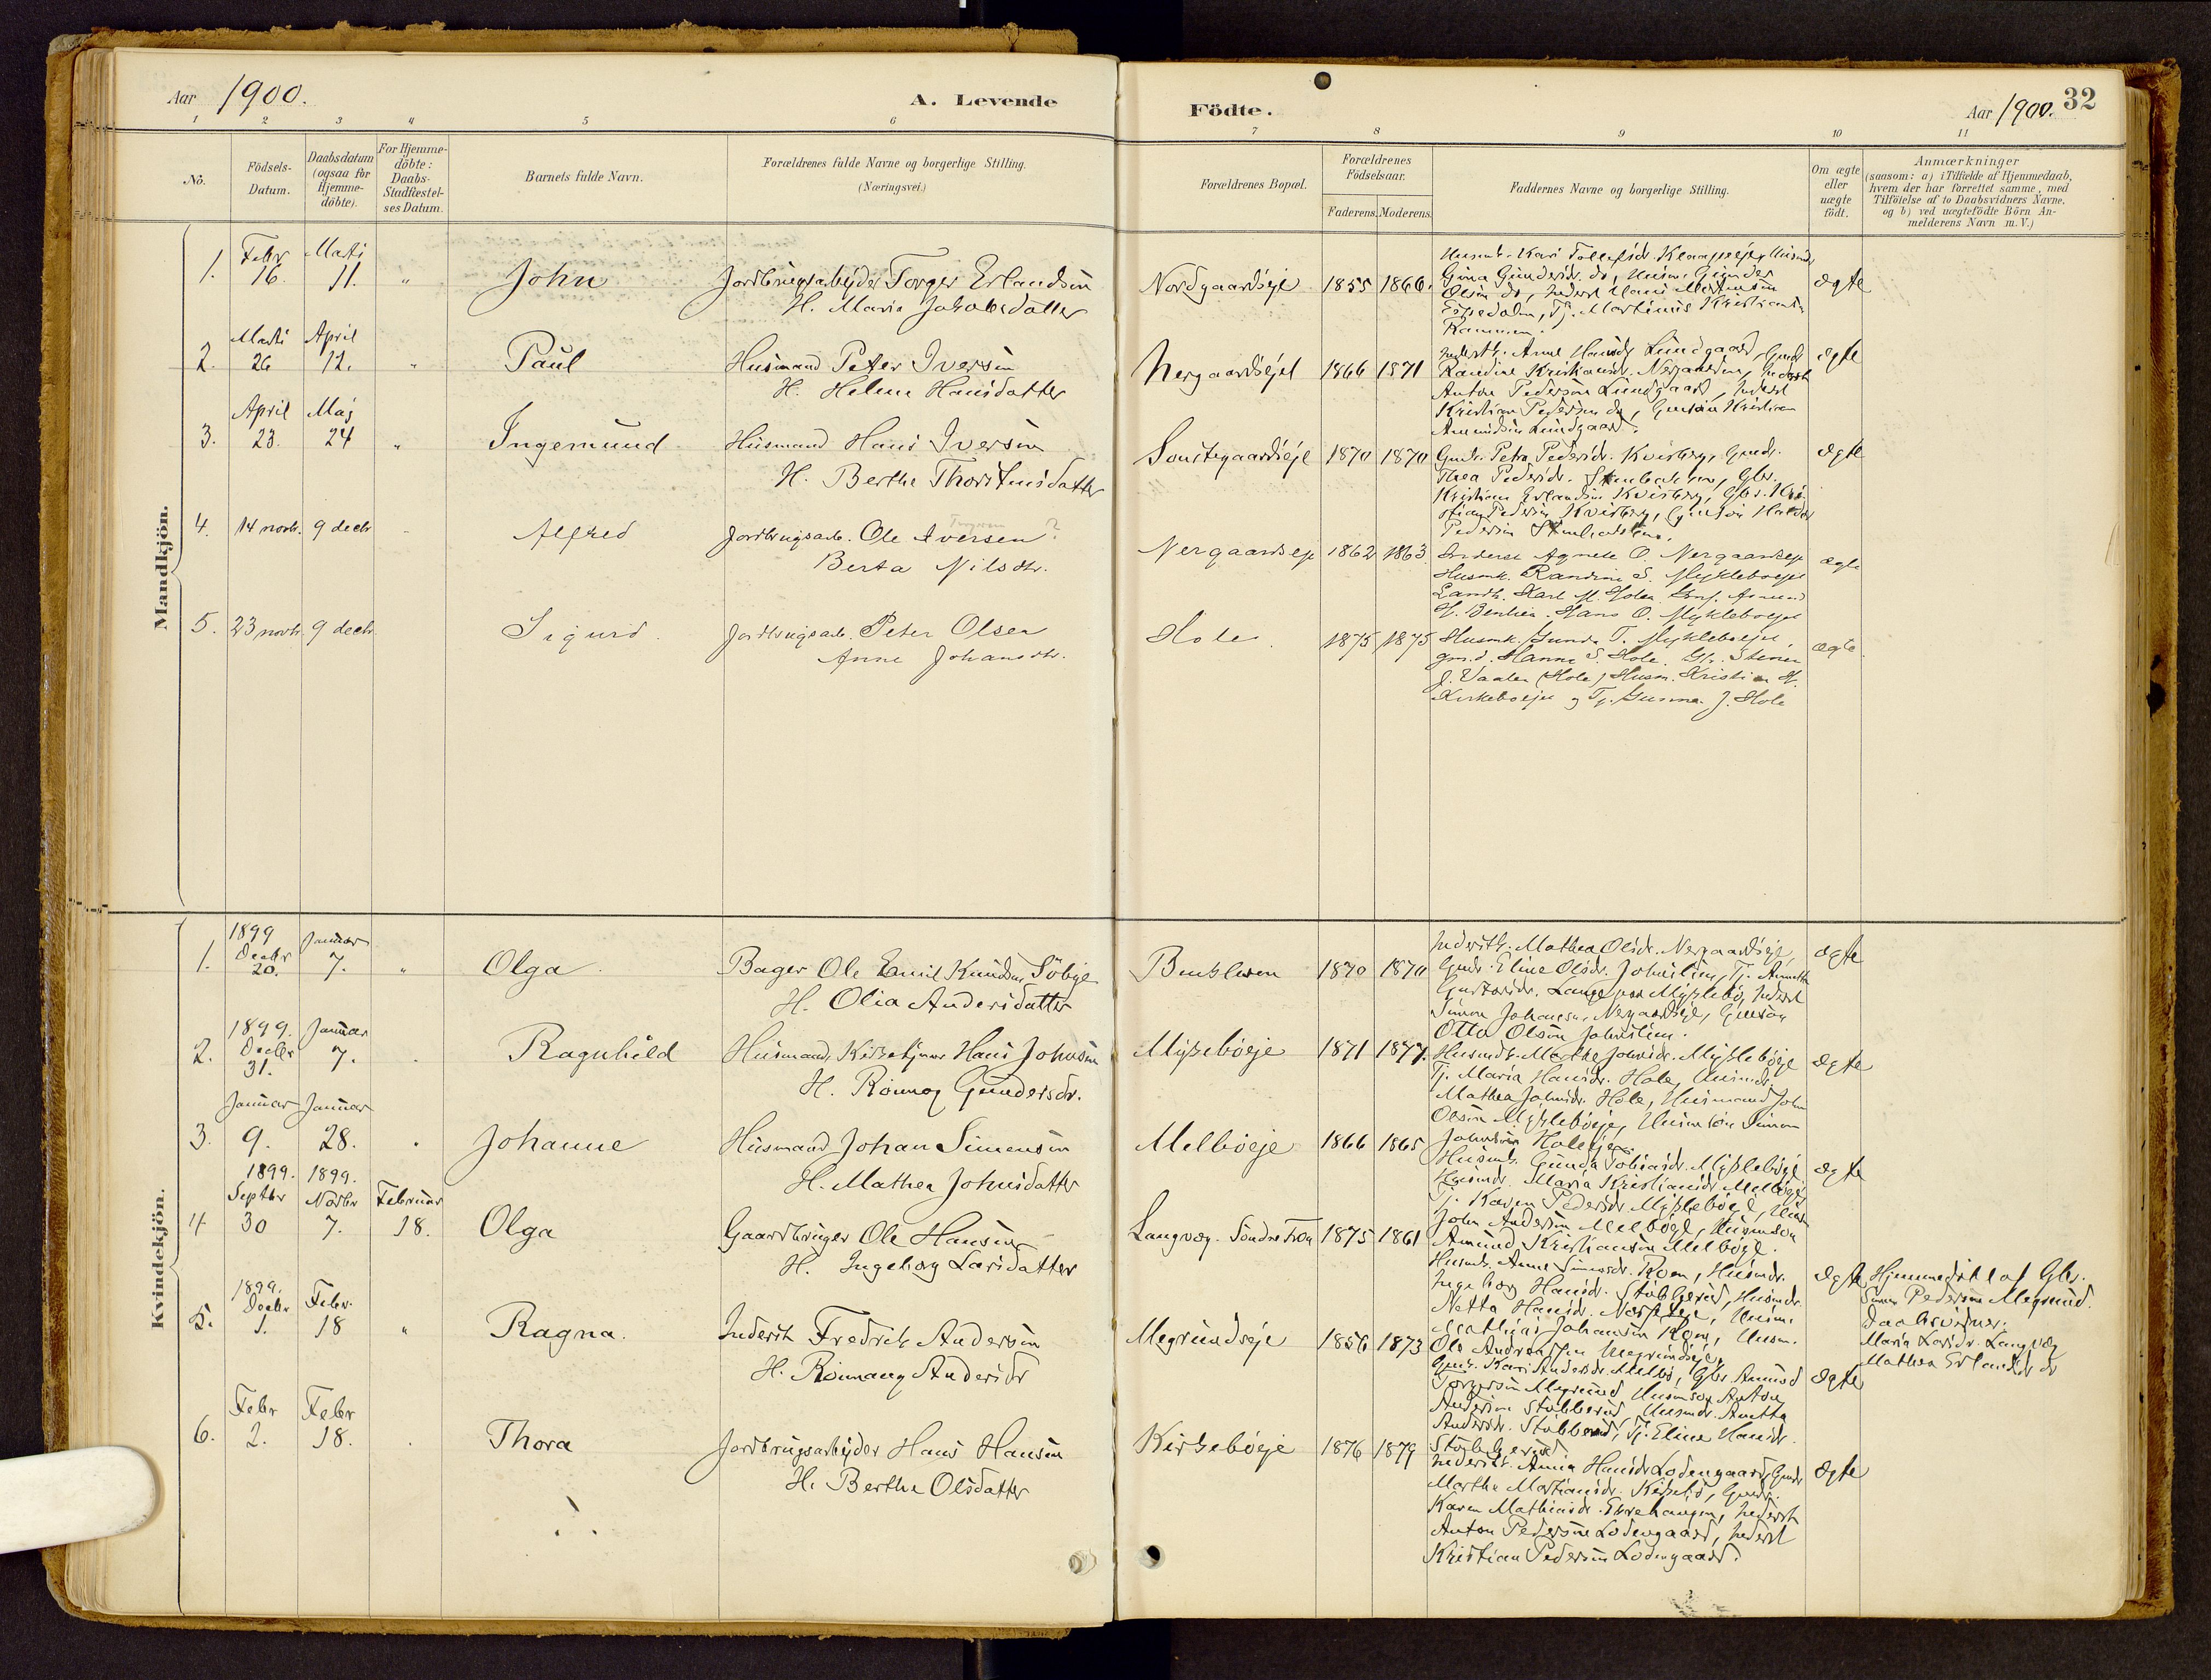 Aar 1900.
A. Levende
Födte.
Aar 1900.
32
1 2 3 4 5 6 7 8 9 10 11
No.
Födsels-
Datum.
Daabsdatum
(ogsaa for
Hjemme-
döbte).
For Hjemme-
döbte:
Daabs-
Stadfæstel-
ses Datum.
Barnets fulde Navn.
Forældrenes fulde Navne og borgerlige Stilling.
(Næringsvei.)
Forældrenes Bopæl.
Forældrenes
Födselsaar.
Faderens. Moderens.
Faddernes Navne og borgerlige Stilling.
Om ægte
eller
uægte
födt.
Anmærkninger
(saasom: a) i Tilfælde af Hjemmedaab,
hvem der har forrettet samme, med
Tilföielse af to Daabsvidners Navne.
og b) ved uægtefödte Börn An-
melderens Navn m.V.)
Mandkjön.
1. Febr 16. Marts 11. " John
Jordbrugsarbejder Torger Erlandsen
H. Maria Jakobsdatter
Nordgaardseje 1855 1866. ægte
Gina Gundersdr. do, Husm. Gunder
Olsen do, Inderst Hans Martinsen
Espedalen, Tj. Martinus Kristiansen
2. Marts 26 April 12. " Paul
Husmand Peter Iversen
H. Helene Hansdatter
Nergaardsejet 1866 1871 ægte
Anton Pedersen Lundgaard, Inderst
Kristian Pedersen do, Gmsön Kristian
Amundsen Lundgaard.
3. April 23. Maj 24 " Ingemund
Husmand Hans Iversen
H. Berthe Thorstensdatter
Sonstegaardseje 1870 1870 ægte
Gmdr. Petra Pedersdr. Kvisberg, Gmdr.
Thea Pedersdr. Gbr.
Kristian Erlandsen Kvisberg, Gbr. Kri-
stian Pedersen Kvisberg, Gmsön
Pedersen
4. 14 novb. 9 decb. Alfred
Jordbrugsarb. Ole Iversen ?
Berta Nilsdtr.
Nergaardseje 1862 1863. ægte
Inderst Agnete O. Nergaardseje
Husmk. Randine S. Mykleboejet
Landh. Karl M. Holen
Hans O. Mykleboejet
5. 23 novb. 9 decb. Sigurd.
Jordbrugsarb. Peter Olsen
Anne Johansdtr.
Hole. 1875 1875 ægte.
Husmk. Gunda T. Mykleboejet,
gm.d. Hanna S. Hole. Gbr. Stener
J. Vaalen (Hole) Husm. Kristian H.
Kirkeboejet og Tj. Gunna J. Hole
Kvindekjön.
1. 1899 Decbr 20. Januar 7. " Olga.
Bager Ole Emil Knudsen Söbye
H. Olia Andersdatter
1870 1870 ægte
Inderstk. Mathea Olsdr. Nergaardseje,
Gmdr. Eline Olsdr. Tj.
Simen Johansen, Nergaardseje, Gmsön
Otto Olsen
2. 1899. Decbr 31. Januar 7. Ragnhild
Husmand, Kirketjener Hans Johnsen
H. Rönnog Gundersdr.
1871 1877. ægte
Husmdr. Marthe Johnsdr. Myklebøeje
Tj. Maria Hansdr. Hole, Husmdr.
Mathea Johnsdr. Hole, Husmand John
Olsen Myklebøeje, Husm.sön Simen
Johnsen
3. Januar 9. Januar 28. Johanne
Husmand Johan Simensen
H. Mathea Johnsdatter
Melbøeje 1866 1865 ægte
Husmk. Gunda Tobiasdr. Myklebøeje
Husmdr. Maria Kristiansdr. Melbøeje
Tj. Karen Pedersdr. Myklebøeje, Husm.
John Andersen Melbøeje, Husmsön
Amund Kristiansen Melbøeje.
4. 1899. Septbr 30 1899. Novbr 7. Februar 18. Olga
Gaardbruger Ole Hansen
H. Ingeborg Larsdatter
Langvæg. Søndre Fron 1875 1861 ægte
Husmk. Anne Simensdr. Roen, Husmdr.
Ingeborg Hansdr. Stubberud, Husmdr.
Netta Hansdr. Husm.
Mathias Johansen Roen, Husm.
Ole Andreassen Megrundseje
Hjemmedöbt af Gbr.
Simen Pedersen Megrund.
Daabsvidner:
Maria Larsdr. Langvæg
Mathea Erlandsdr. do
5. 1899. Decbr 1. Febr. 18 " Ragna.
Inderst Fredrik Andersen
H. Rönnaug Andersdr
Megrundseje 1856 1873 ægte
Gmk. Kari Andersdr. Melbø, Gbr. Amund
Torgersen Megrund, Husmson Anton
Andersen Stubberud, Husmdr. Anetta
Andersdr. Stubberud, Tj. Eline Hansdr.
Stubberud.
6. Febr 2. Febr 18. Thora
Jordbrugsarbejder Hans Hansen
H. Berthe Olsdatter
Kirkebøeje 1876 1879 ægte
Inderstk. Anna Hansdr. Lodengaard, Gmdr.
Marthe Mathiasdr. Kirkebø, Gmdr.
Karen Mathiasdr. Inderst
Anton Pedersen Lodengaard, Inderst
Kristian Pedersen Lodengaard.